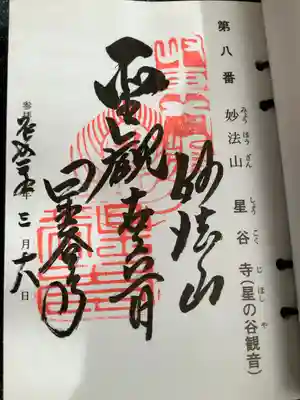 第八番 妙法山 星谷寺(星の谷観音)
みょうほうざん しょうこくじ ほし や
妙法山
聖観世音
星谷寺
参拝 年三月十六日